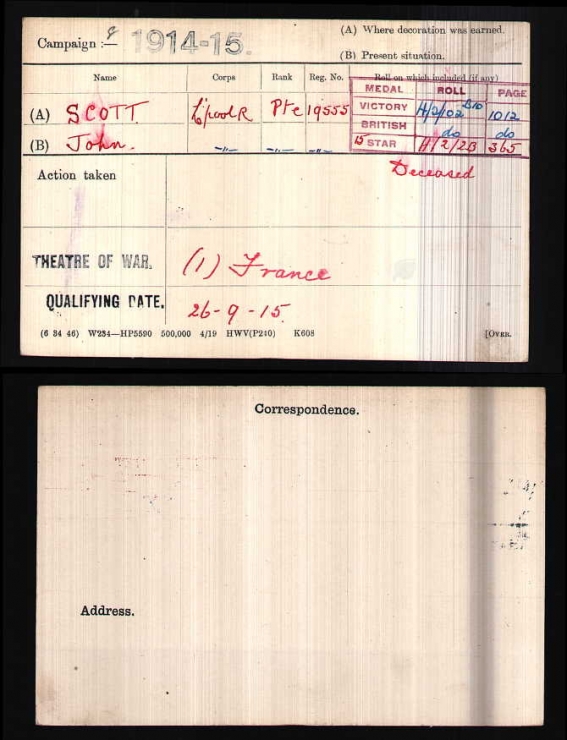 (A) Where decoration was earned.
Campaign :— 1914-15.
(B) Present situation.
Name Corps Rank Reg. No. Roll on which included (if any)
MEDAL ROLL PAGE
(A) SCOTT L'pool R Pte 19555 VICTORY H/2/102 B10 1012
BRITISH do do
(B) John. —"— —"— —"— 15 STAR H/2/2B 365
Action taken Deceased
THEATRE OF WAR. (1) France
QUALIFYING DATE. 26-9-15
(6 34 46) W234—HP5590 500,000 4/19 HWV(P240) K608 [OVER.
Correspondence.
Address.